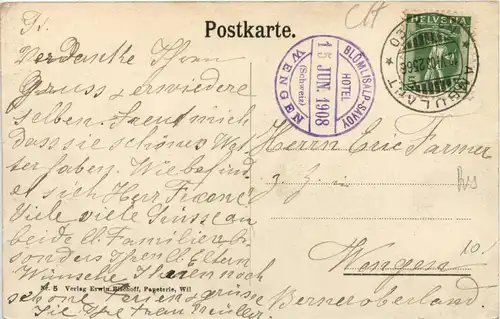 Postkarte.
HELVETIA
AMBULANT
BLÜMLISALP-SAVOY
HOTEL
15 JUN. 1908
(Schweiz)
WENGEN
Verdanke Ihren
Gruss & erwiedere
selben. Freut mich
dass sie schönes Wet
ter haben. Wie befind
et sich Herr
Viele viele Grüsse an
beide ll. Familien be
sonders Ihren ll. Eltern
Wünsche Ihnen noch
schöne Ferien & grüsse
Sie Ihre Frau Müller.
Herrn Eric Farmer
z. Z. in
Wengen
Berneroberland.
10
Nr. 5 Verlag Erwin Bischoff, Papeterie, Wil